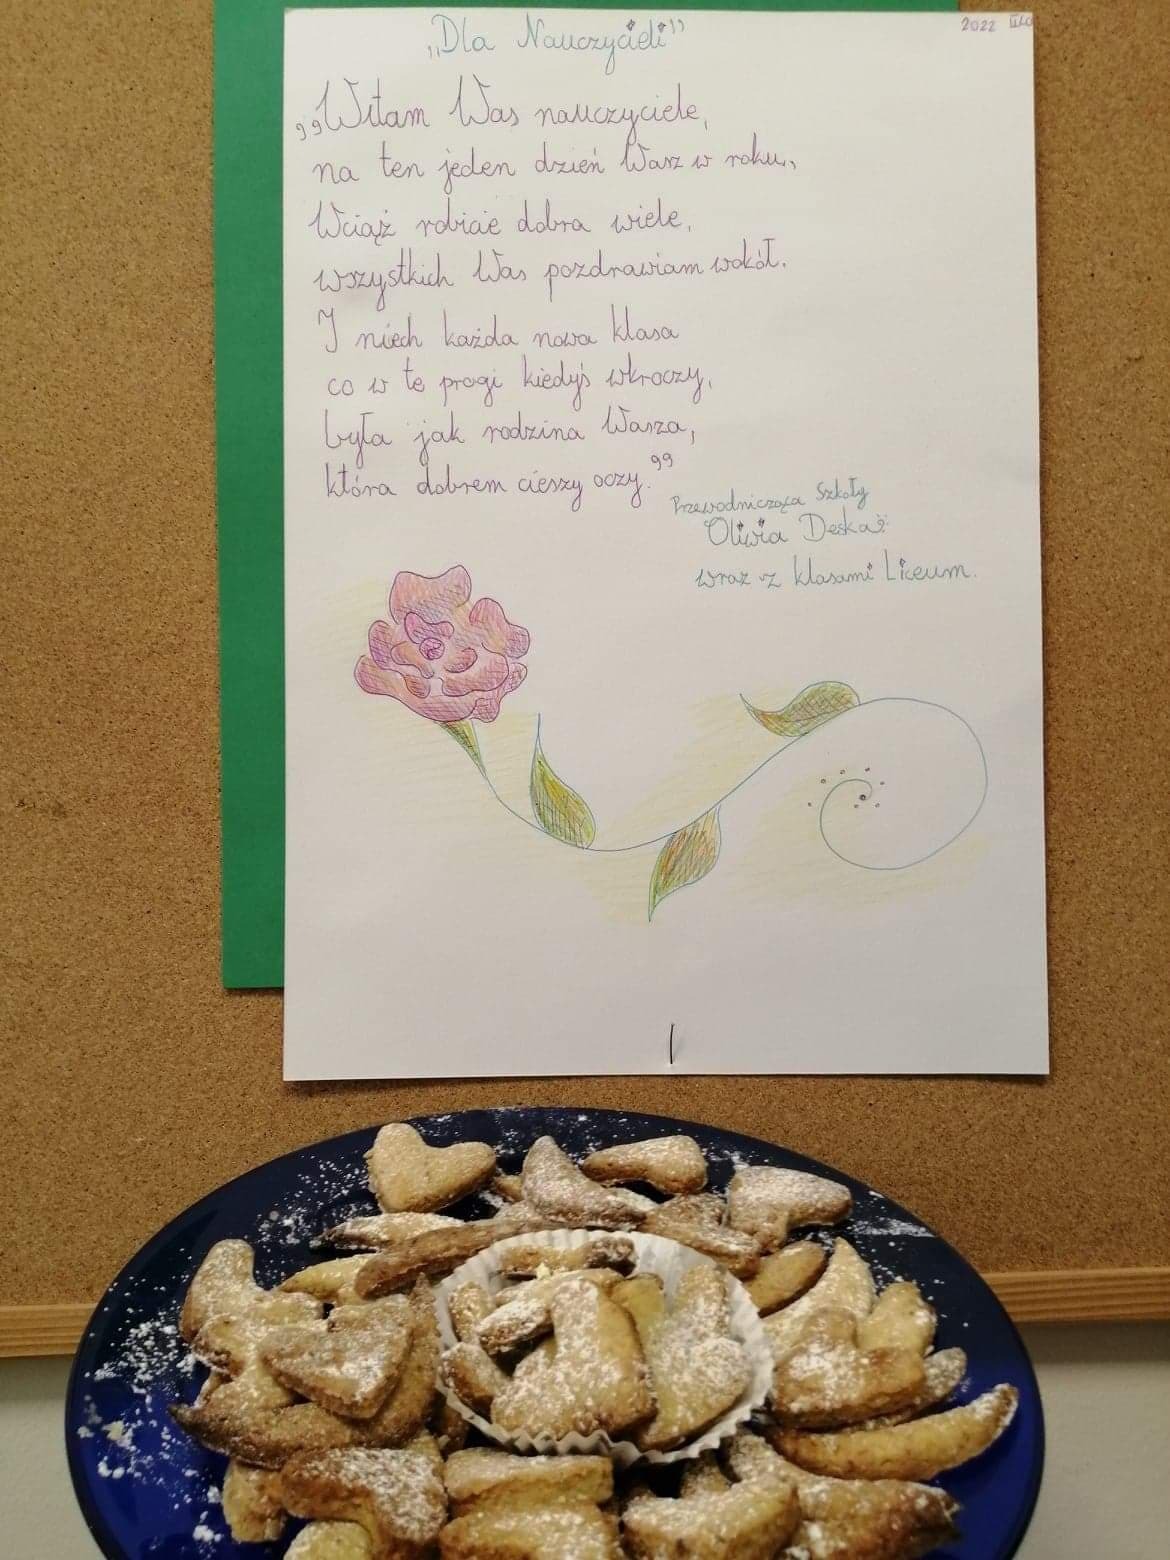 „Dla Nauczycieli”
2022
„Witam Was nauczyciele,
na ten jeden dzień Wasz w roku,
Wciąż robicie dobra wiele,
wszystkich Was pozdrawiam wokół.
I niech każda nowa klasa
co w te progi kiedyś wkroczy,
była jak rodzina Wasza,
która dobrem cieszy oczy.”
Przewodnicząca Szkoły
Oliwia Deska
wraz z klasami Liceum.